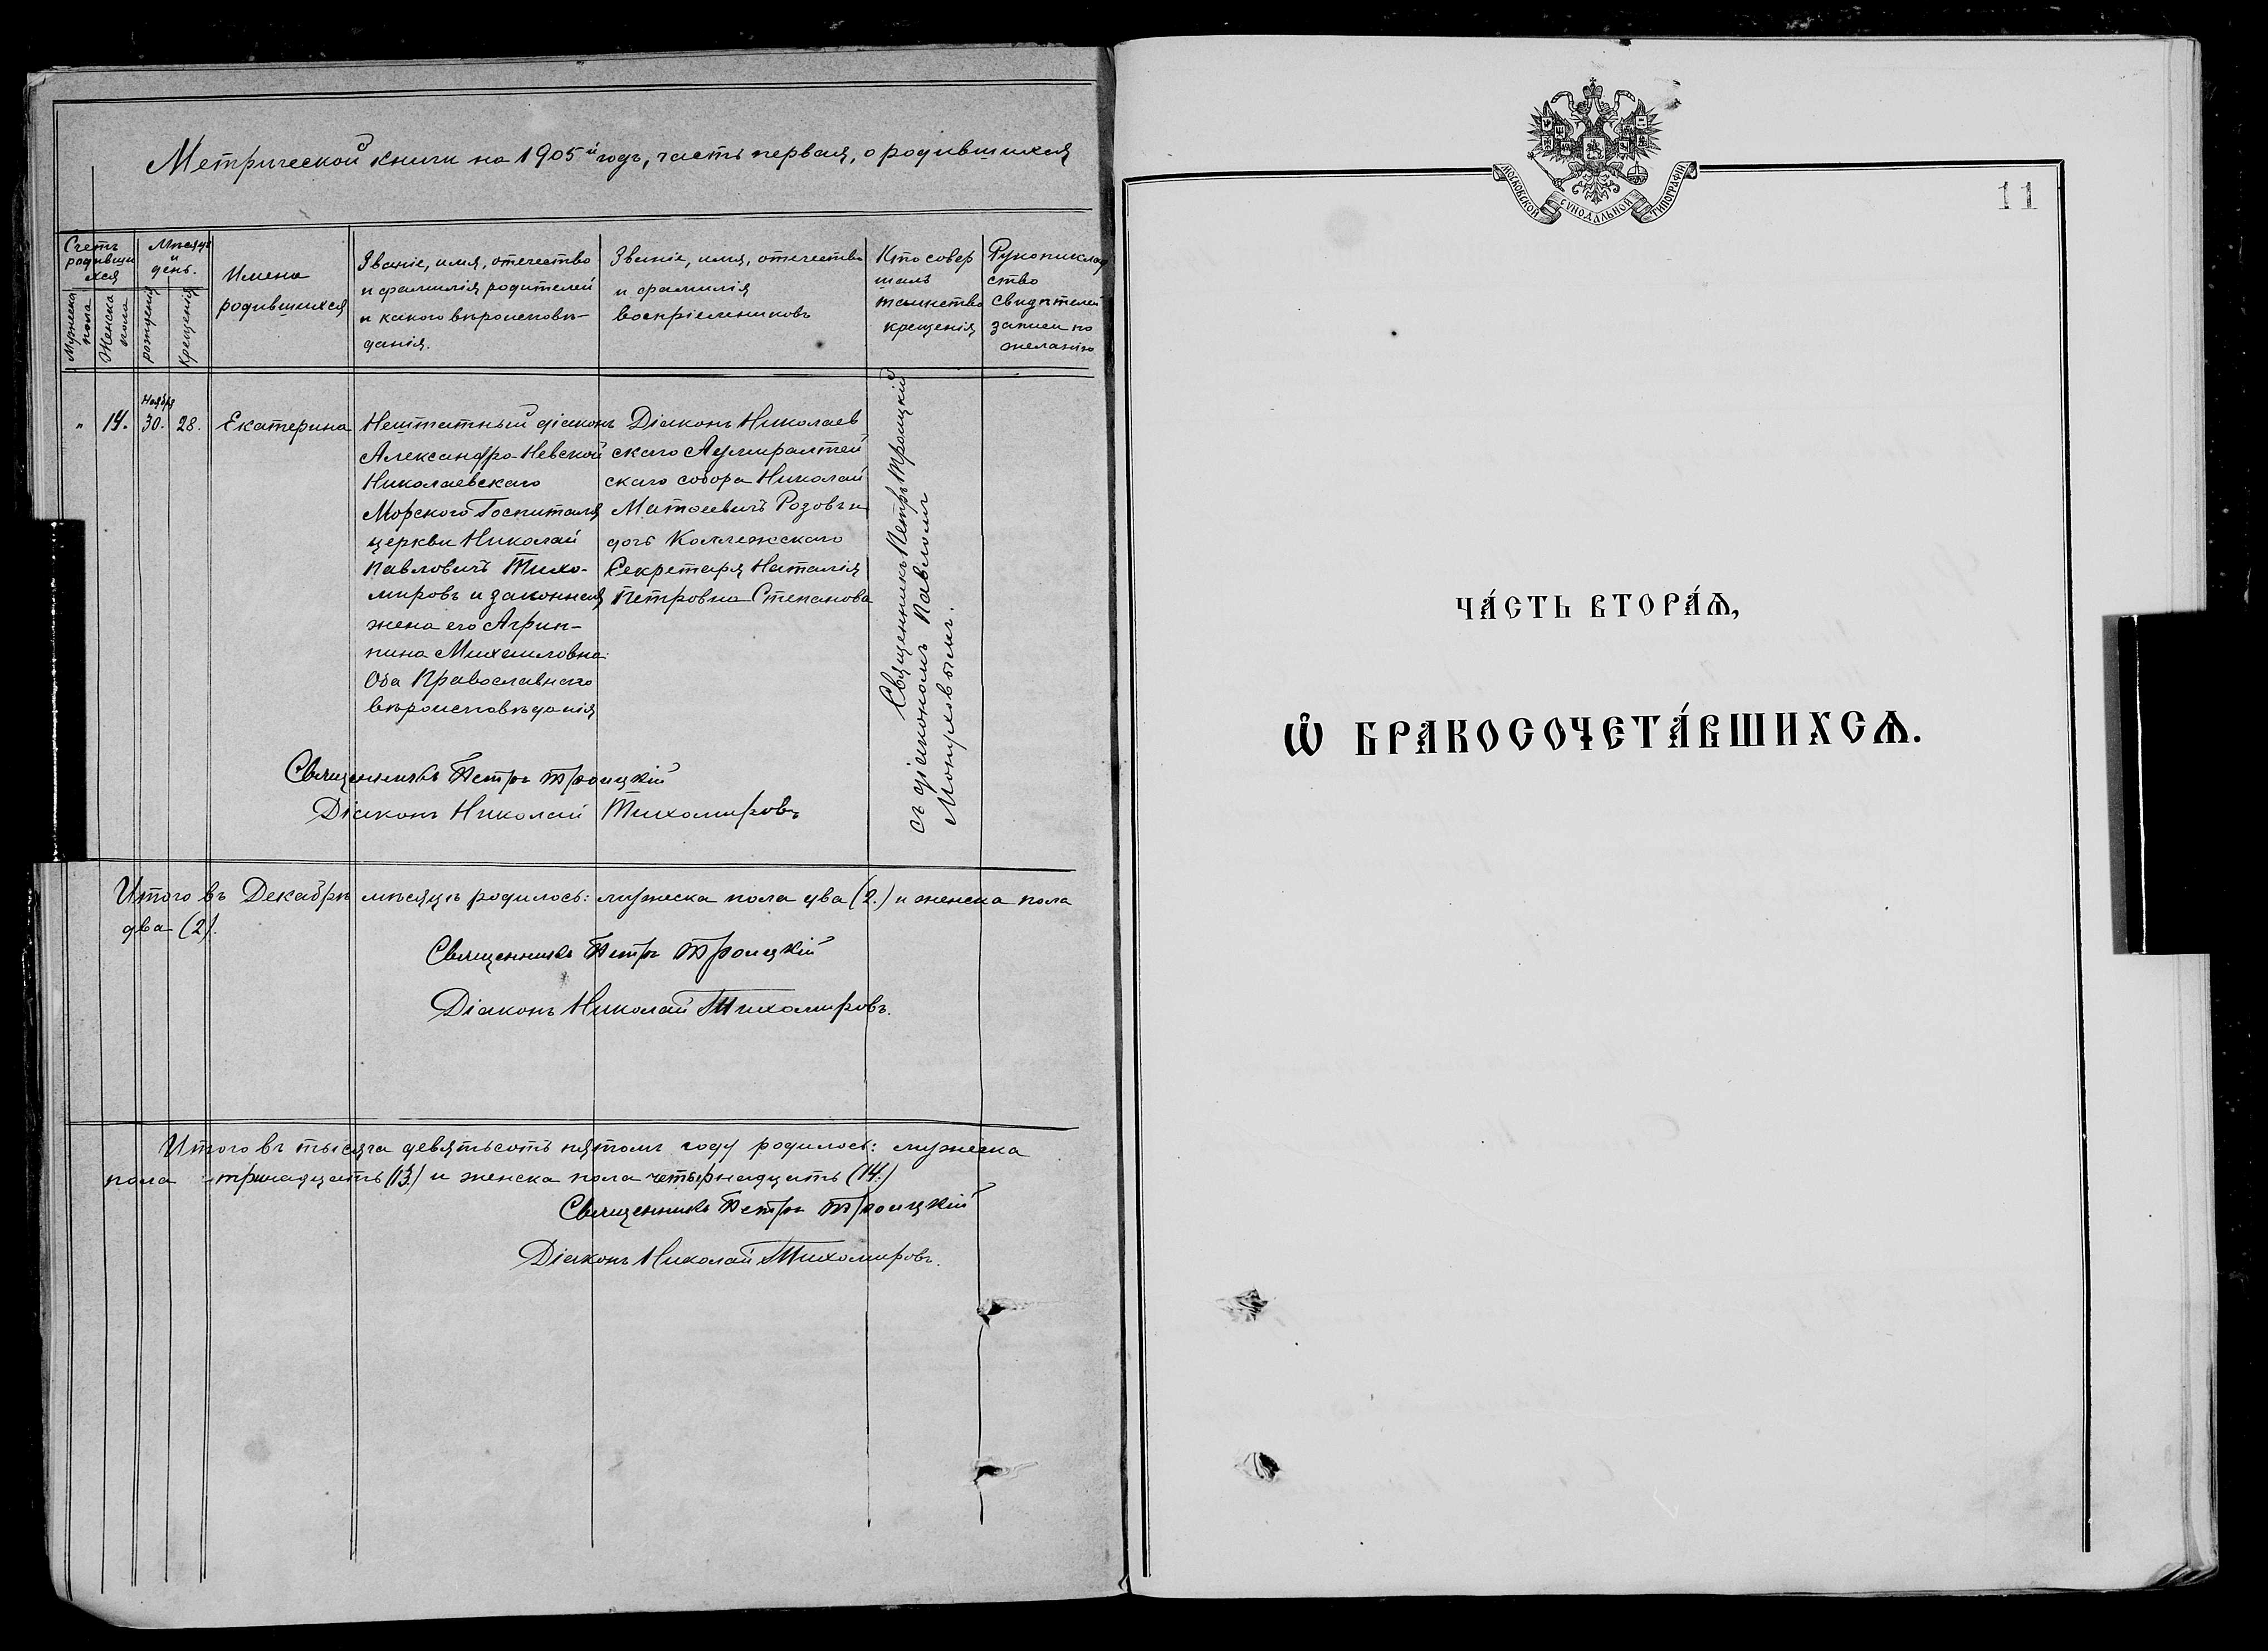 Метрической книги на 1905й годъ, часть первая, о родившихся
Счетъ родивши хся
Мужеска пола
Женска пола
Мѣсяцъ и день.
рожденія
крещенія
Имена родившихся
Званіе, имя, отечество и фамилія родителей и какого вѣроисповѣданія.
Званіе, имя, отечество и фамилія воспріемниковъ
Кто совер шалъ таинство крещенія
Рукоприклад ство свидѣтелей записи по желанію
" 14. Ноября 30. 28. Екатерина
Нештатный діаконъ
Александро-Невской
Николаевскаго
Морского Госпиталя
церкви Николай
Павловичъ Тихо-
мировъ и законная
жена его Агрип-
пина Михаиловна.
Оба Православнаго
вѣроисповѣданія
Діаконъ Николаев
скаго Адмиралтей
скаго собора Николай
Матѳеевичъ Розовъ и
дочь Коллежскаго
Секретаря Наталія
Петровна Степанова
Священникъ Петръ Троицкій
съ діакономъ Павломъ
Священникъ Петръ Троицкій
Діаконъ Николай Тихомировъ
Итого въ Декабрѣ мѣсяцѣ родилось: мужеска пола два (2.) и женска пола
два (2).
Священникъ Петръ Троицкій
Діаконъ Николай Тихомировъ.
Итого въ тысяча девятьсотъ пятомъ году родилось: мужеска
пола - тринадцать (13.) и женска пола четырнадцать (14.)
Священникъ Петръ Троицкій
Діаконъ Николай Тихомировъ.
МОСКОВСКОЙ СѴНОДАЛЬНОЙ ТИПОГРАФІИ
11
ЧА́СТЬ ВТОРА́Ѧ,
Ѽ БРАКОСОЧЕТА́ВШИХСѦ.